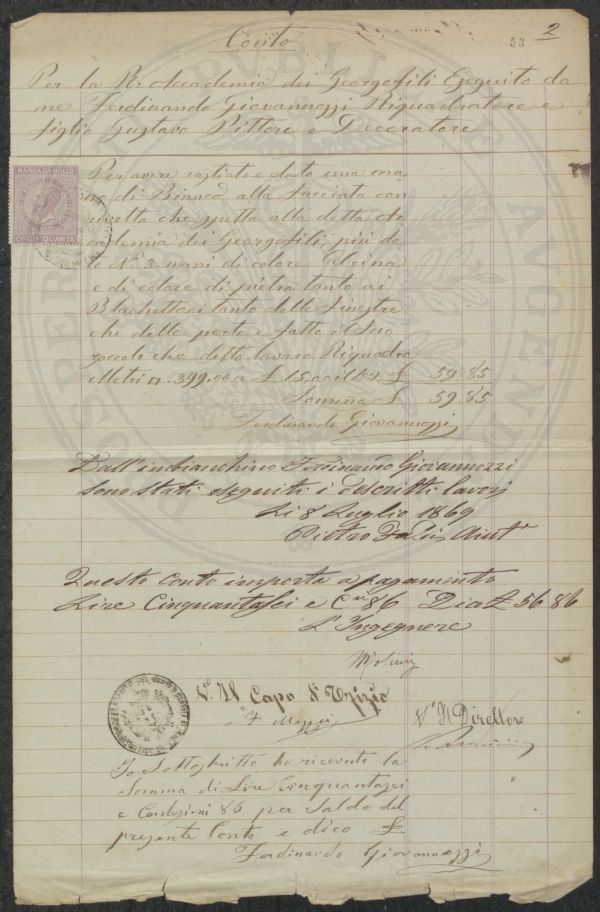 53
2
Conto
Per la R. Accademia dei Georgofili Eseguito da
me Ferdinando Giovannozzi Riquadratore e
figlio Gustavo Pittore e Decoratore
Per avere rastiato e dato una ma
no di Bianco alla facciata con
che spetta alla detta Ac
cademia dei Georgofili, più da
to N. 3 mani di colore
e di colore di pietra tanto ai
tanto delle finestre
che delle porte e fatto il suo
zoccolo che detto lavoro Riquadra
Metri □. 399.00 a £ 15.00 il £ 59.85
Somma £ 59.85
Ferdinando Giovannozzi
MARCA DA BOLLO
CINQUANTA
Dall'imbianchino Ferdinando Giovannozzi
sono stati eseguiti i descritti lavori
Li 8 Luglio 1869
Pietro
Questo conto importa a pagamento
Lire Cinquantasei e Cmi 86 Dico £ 56 86
L'Ingegnere
Vo. Il Capo d'Ufizio
Vo Il Direttore
Io Sottoscritto ho ricevuto la
Somma di Lire Cinquantasei
e Centesimi 86 per Saldo del
presente Conto e dico £
Ferdinando Giovannozzi
PROSPERITATI PUBLICAE AUGENDAE